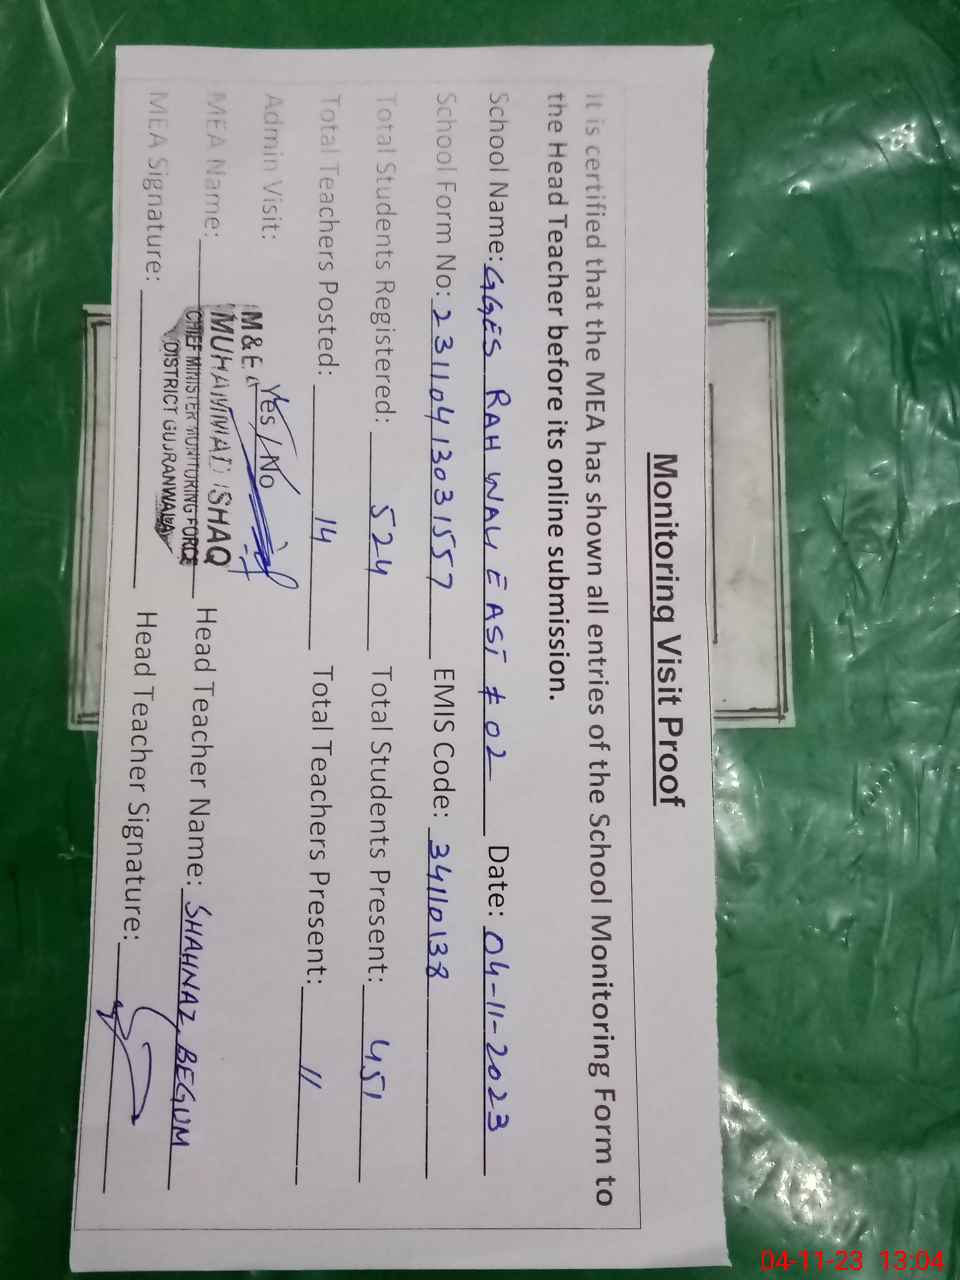 Monitoring Visit Proof
It is certified that the MEA has shown all entries of the School Monitoring Form to
the Head Teacher before its online submission.
School Name: GGES RAHWALI EAST # 02 Date: 04-11-2023
School Form No: 2311041303157 EMIS Code: 34110138
Total Students Registered: 524 Total Students Present: 451
Total Teachers Posted: 14 Total Teachers Present: 11
Admin Visit: Yes / No
M & E A
MEA Name: MUHAMMAD ISHAQ Head Teacher Name: SHAHNAZ BEGUM
CHIEF MINISTER MONITORING FORCE
DISTRICT GUJRANWALA
MEA Signature: Head Teacher Signature:
04-11-23 13:04